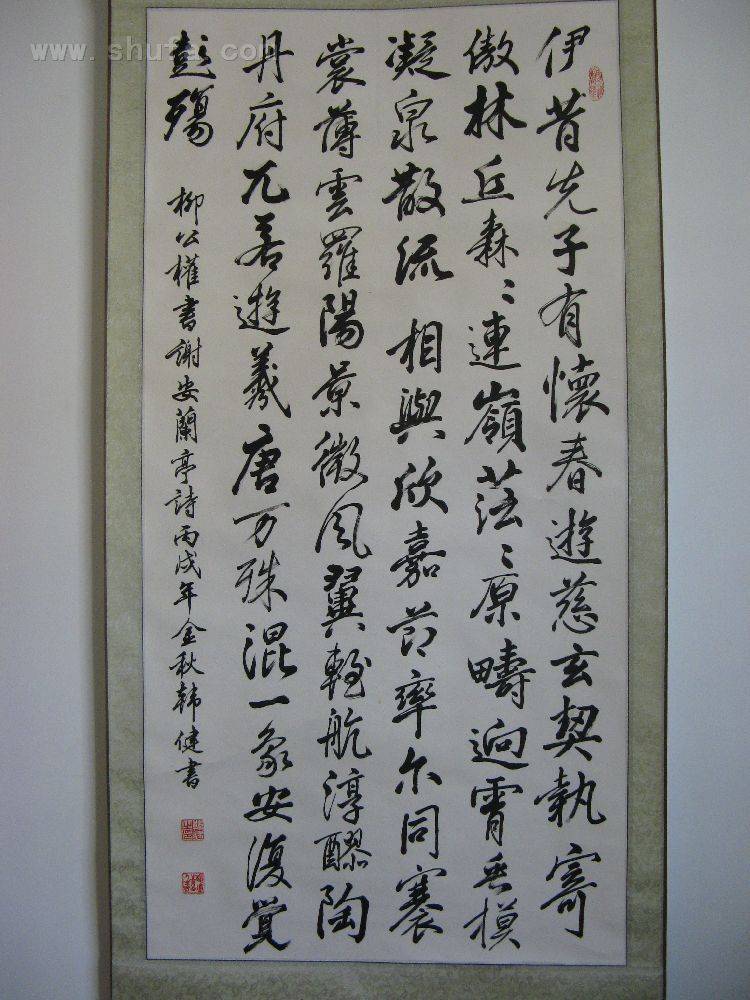 伊昔先子有懷春遊慈玄契執寄
傲林丘森〻連嶺茫〻原疇迥霄垂模
凝泉散流相與欣嘉節率尔同褰
裳薄雲羅陽景微風翼輕航淳醪陶
丹府兀若遊羲唐万殊混一象安復覺
彭殤
柳公權書謝安蘭亭詩丙戌年金秋韩健書
www.shufa.com